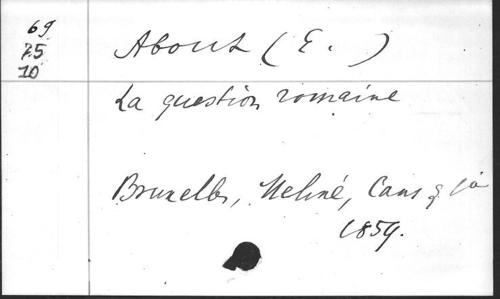 69
75
10
About (E.)
La question romaine
Bruxelles, Meline, Cans & Cie
1859.